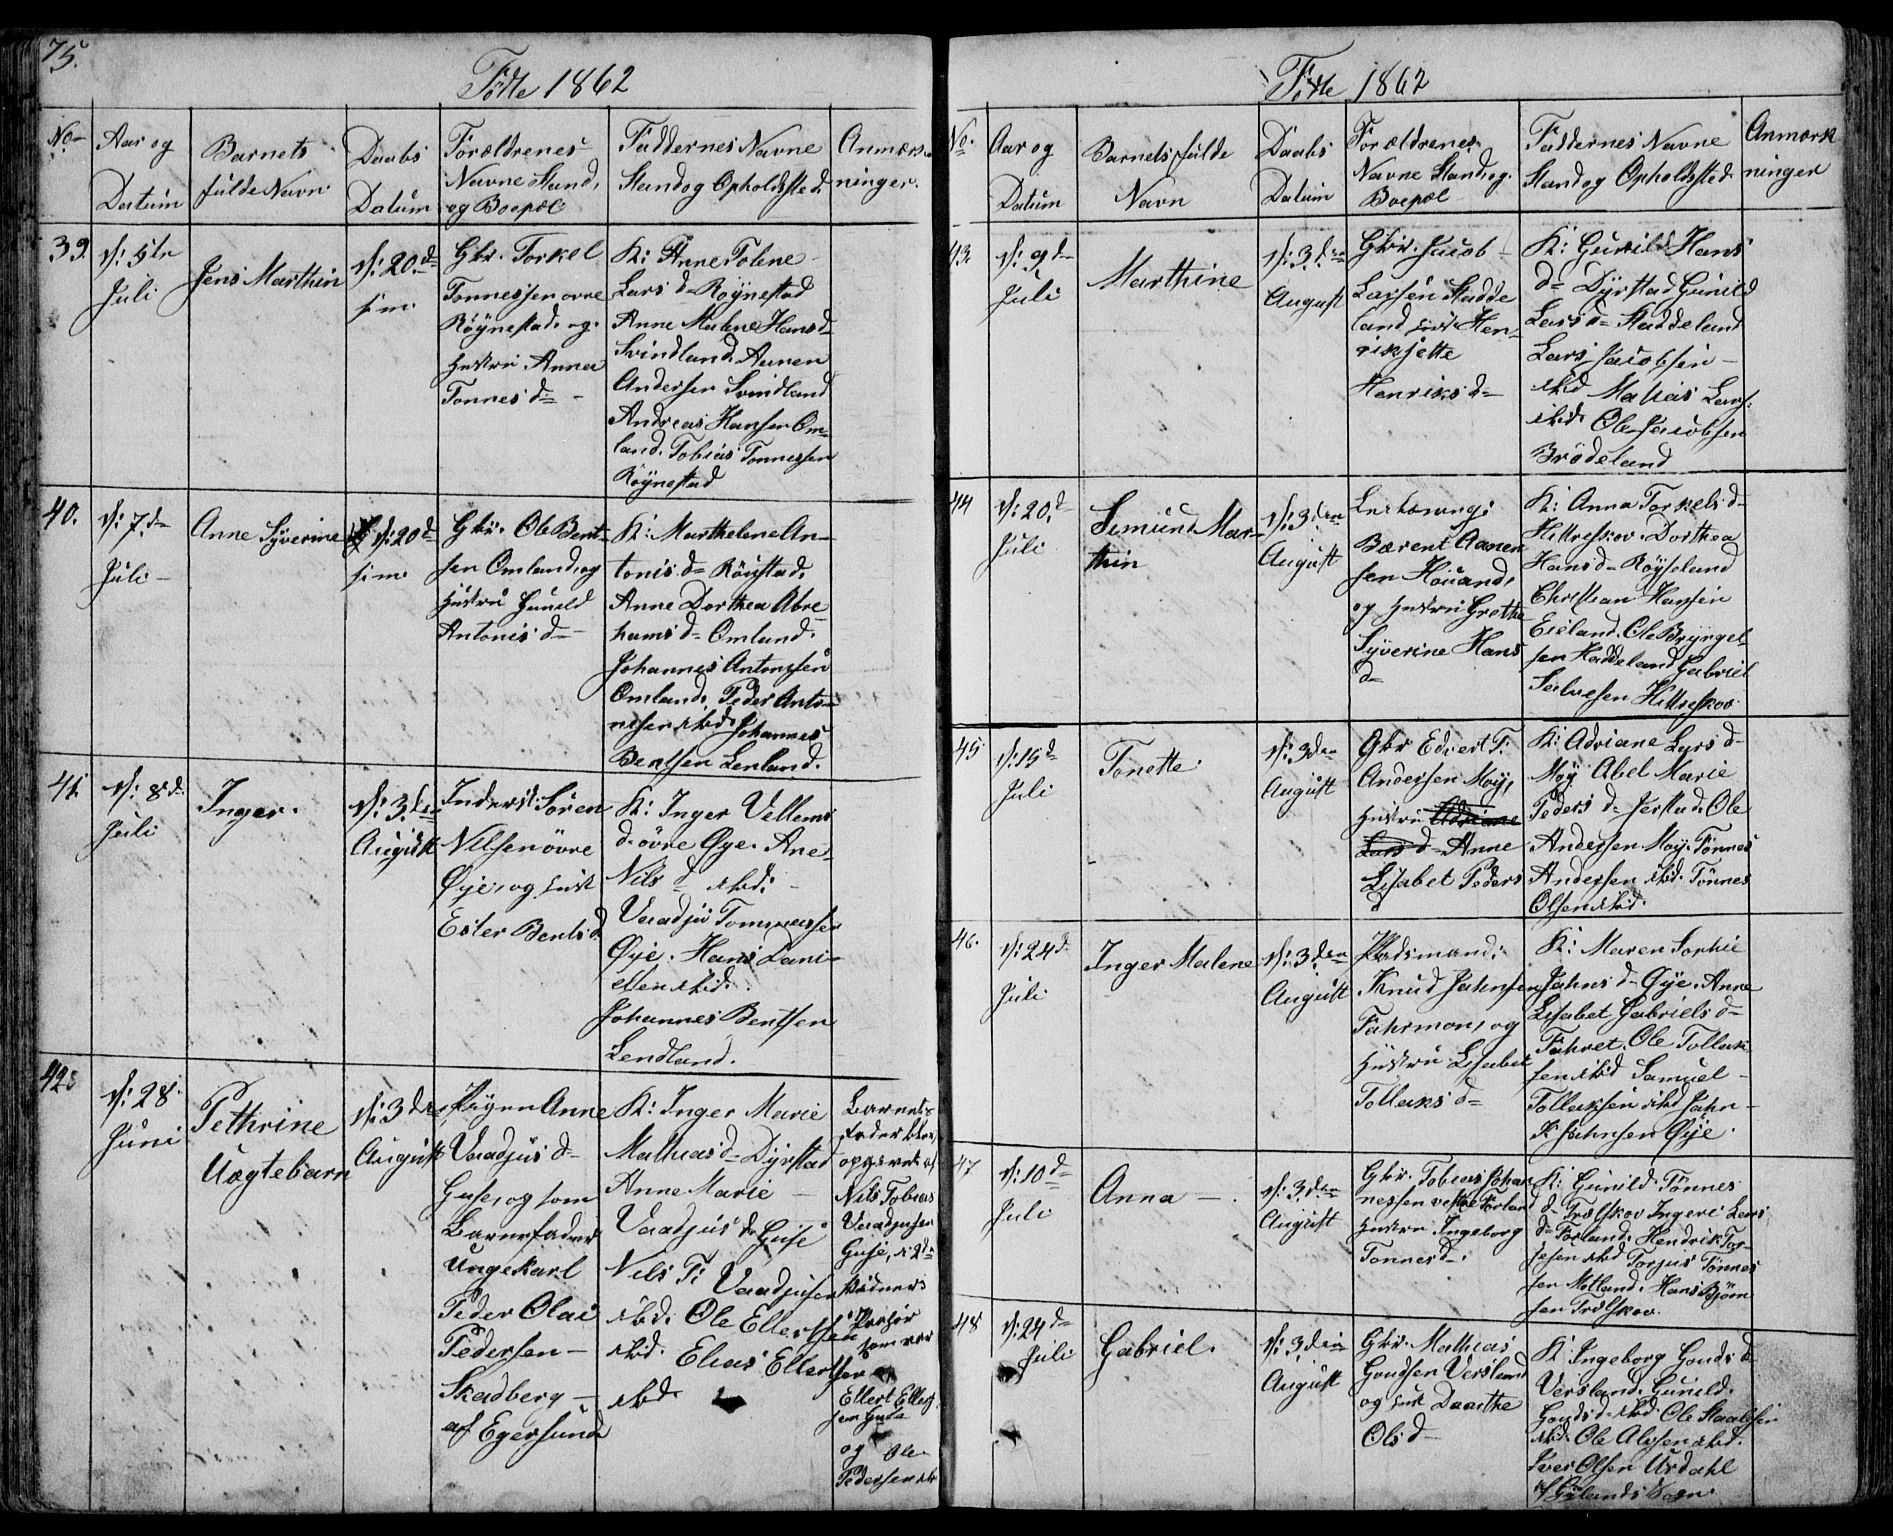 75.
Födte 1862
No
Aar og
Datum
Barnets
fulde Navn
Daabs
Datum
Forældrenes
Navne Stand,
og Boepæl
Faddernes Navne
Stand og Opholdssted
Anmærk-
ninger.
39.
d: 5te
Juli
Jens Marthin
d: 20.d
s: m.
Gbr. Torkel
Tonnessen ovre
Röynestad. og
Hustru Anne
Tonnes d-
K: Anne Tolene
Lars d- Röynestad
Anne Malene Hans d-
Svindland. Aanen
Andersen Svindland
Andreas Hansen Om-
land. Tobias Tonnessen
Röynestad
40.
d: 7.d
Juli
Anne Syverine
d: 20d
s: m.
Gbr. Ole Bent-
sen Omland, og
Hustru Gunild
Antonis d-
K: Marthelene An-
tonis d-
Anne Dorthea Abra-
hams d- Omland.
Johannes Antonssen
Omland. Peder Anto-
nesen ibid. Johannes
Bentsen Lenland.
41.
d: 8d
Juli
Inger.
d: 3den
August
Inderst: Sören
Nilsen övre
Øye, og Hust
Ester Bents d.
K: Inger Vellems
d. övre Øye. Ane
Nils d ibid:
Vaadjü Tommassen
Øye. Hans Dani-
elsen ibid.
Johannes Bentsen
Lendland.
42.
d: 28.
Juni
Pethrine
Uægtebarn
d: 3den
August
Pigen Anne
Vaadjüs d-
Guse, og som
Barnefader
Ungekarl
Peder Olai
Pedersen
Skadberg
af Egersund
K: Inger Marie
Mathias d- Dyrstad
Anne Marie
Vaadjüs d- Guse
Nils T: Vaadjusen
ibid. Ole Ellertsen
ibid. Elias Ellertsen
ibid.
Barnets
Fader blev
opgivet af
Nils Tobias
Vaadjusen
Guse, a 2de
Vidner
som var
Ellert Ellert-
sen Guse
og Ole
Pedersen ibid
Födte 1862
No.
Aar og
Datum
Barnets fulde
Navn
Daabs
Datum
Forældrenes
Navne Stand og
Boepæl
Faddernes Navne
Stand og Opholdssted
Anmærk
ninger
43
d: 9d
Juli
Marthine
d: 3den
August
Gbr. Jacob
Larsen Stadde
land Hust. Hen-
rikjette
Henriks d-
K: Gunild Hans
d- Dyrstad Gunild
Lars d- Staddeland
Lars Jacobsen
ibid Mathias Lars:
ibid. Ole Jacobsen
Brödeland
44
d: 20.d
Juli
Semund Mar-
thin
d: 3den
August
Bærent Aanen
sen Houand,
og Hustru Grethe
Syverine Hans
d-
K: Anna Torkels d-
Hittreskov. Dorthea
Hans d- Röyseland
Christian Hansen
Eieland. Ole Bryngel-
sen Haddeland Gabriel
Salvesen Hittreskov.
45
d: 15d
Juli
Tonette.
d: 3den
August
Gbr Edvert T:
Andersen Moy,
Hustru Adriane
Lars d- Anne
Lisabet Peders
d
K: Adriane Lars d-
Moy Abel Marie
Peders d- Jerstad. Ole
Andersen Moy. Tönnes
Andersen ibid. Tönnes
Olsen ibid.
46.
d: 24d
Juli
Inger Malene
d: 3den
August
Pladsmand:
Knud Jahnsen
Fahrmon, og
Hustru Lisabet
Tollaks d-
K: Maren Sophie
Jahns d- Øye. Anne
Lisabet Gabriels d-
Fahret. Ole Tollak-
sen ibid Samuel
Tollaksen ibid Jahn
K Jahnsen Øye.
47
d: 10d
Juli
Anna
d: 3den
August
Gbr. Tobias Johan
nessen vestre Törland
Hustru Ingeborg
Tonnes d-.
K: Gunild Tönnes
d- Trælskov Ingeri Lars
d- Törland. Hendrik Tor-
jesen ibid Torjus Tönnes
sen Motland. Hans Björn
sen Trælskov.
48
d: 24d
Juli
Gabriel.
d: 3den
August
Gbr. Mathias
Gundsen Versland
og Hus Daarthe
Ols d-
K: Ingeborg Gunds d-
Versland. Gunild
Gunds d- ibid. Ole
ibid. Ole Alvsen ibid.
Iver Olsen Urdahl
af Gylands Sogn.